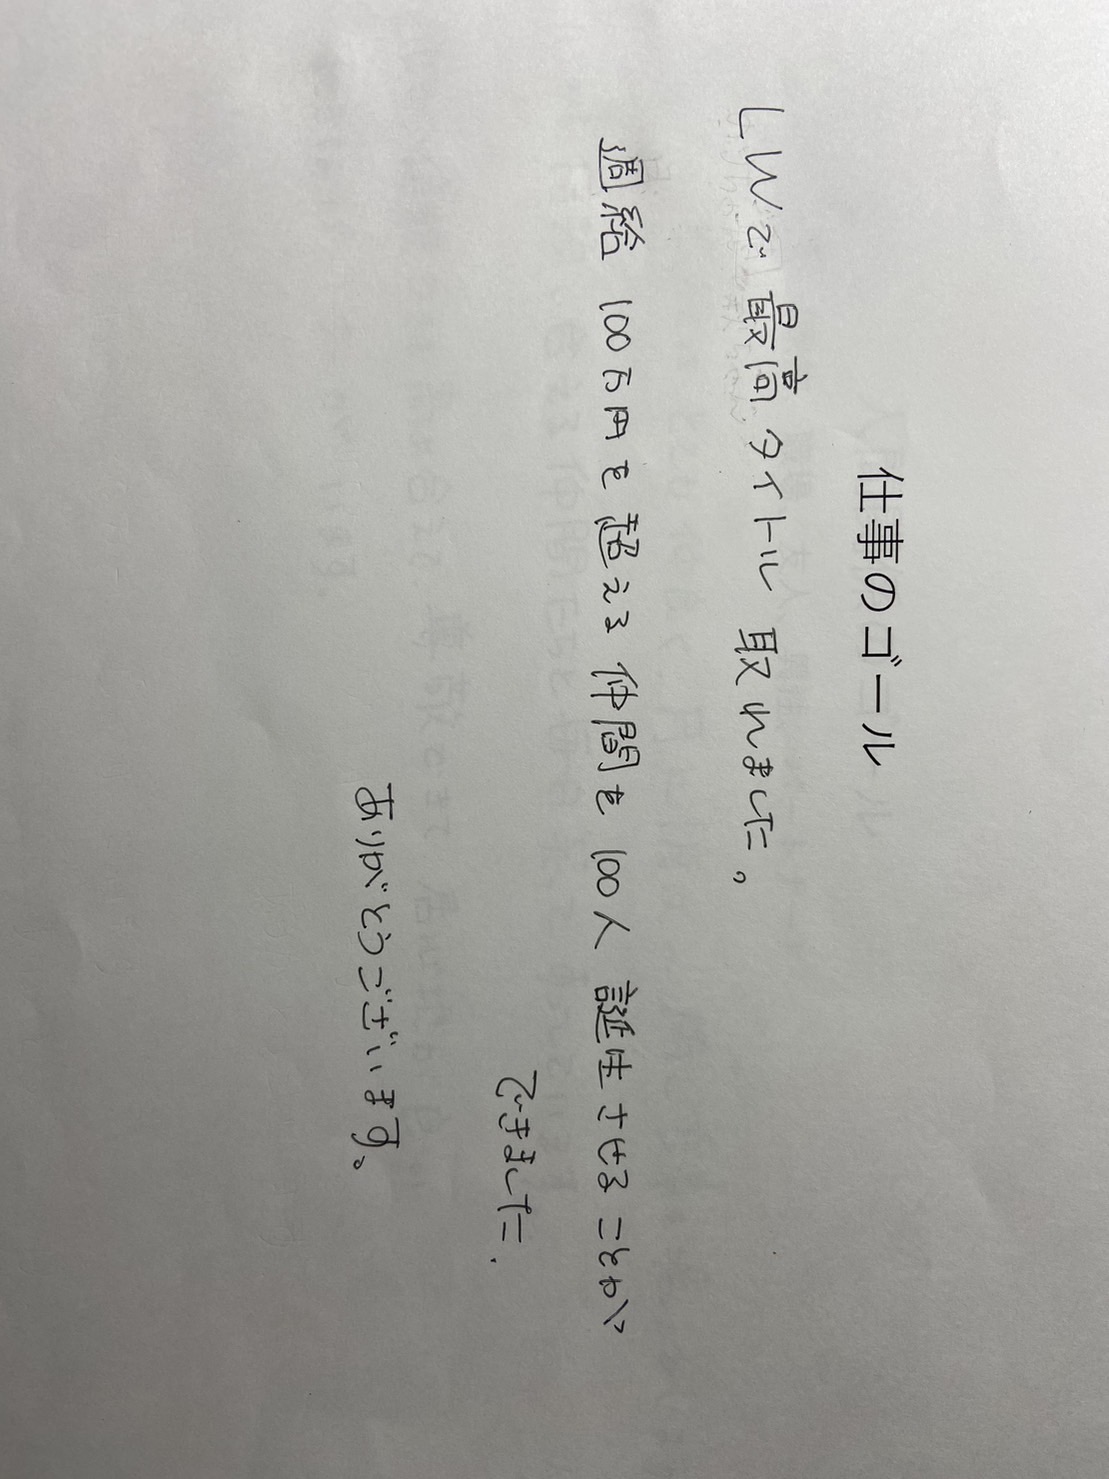 仕事のゴール
LWで最高タイトル取れました。
週給100万円を超える仲間を100人誕生させることが
できました.
ありがとうございます。